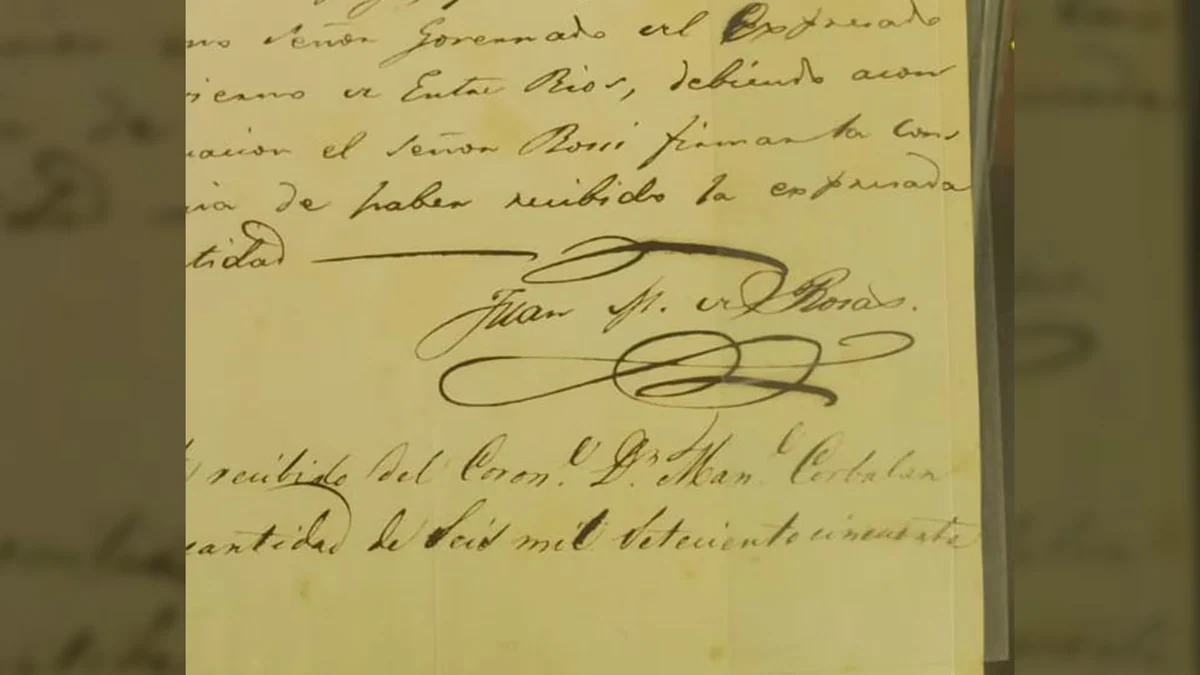 mo Señor Governado del Expresado
ierno de Entre Rios, debiendo acon
uacion el Señor Rosi firmar la cons
cia de haber recibido la expresada
tidad
Juan M. de Rosas.
recibido del Coron.l D.n Man.l Corbalan
cantidad de Seis mil Seteciento cincuenta